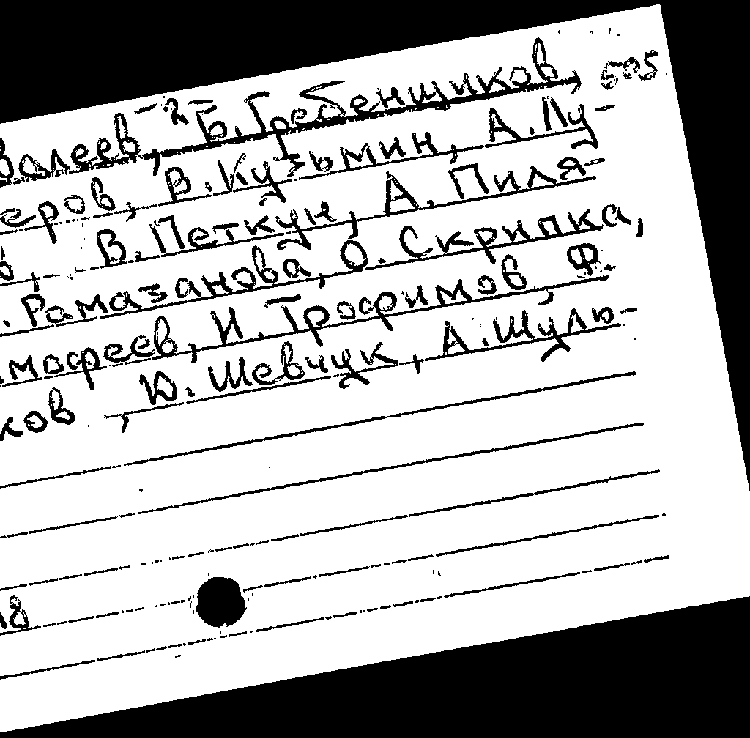 -2-
валеев, Б. Гребенщиков, 505
еров, В. Кузьмин, А. Лу-
в, В. Петкун, А. Пиля-
. Рамазанова, О. Скрипка,
мофеев, И. Трофимов, Ф.
ков, Ю. Шевчук, А. Шулю-
18